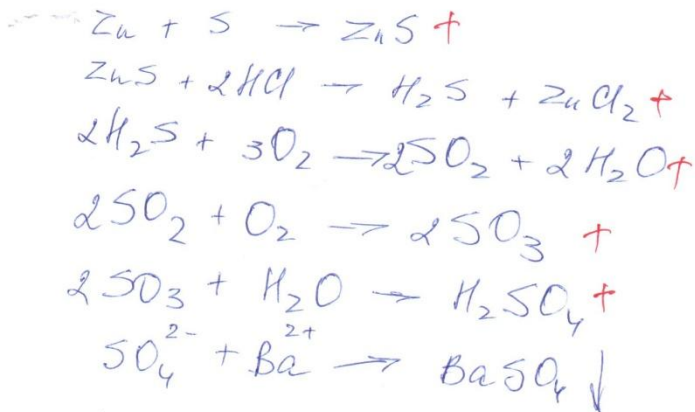 Zn + S → ZnS +
ZnS + 2HCl → H₂S + ZnCl₂ +
2H₂S + 3O₂ → 2SO₂ + 2H₂O +
2SO₂ + O₂ → 2SO₃ +
2SO₃ + H₂O → H₂SO₄ +
SO₄²⁻ + Ba²⁺ → BaSO₄ ↓